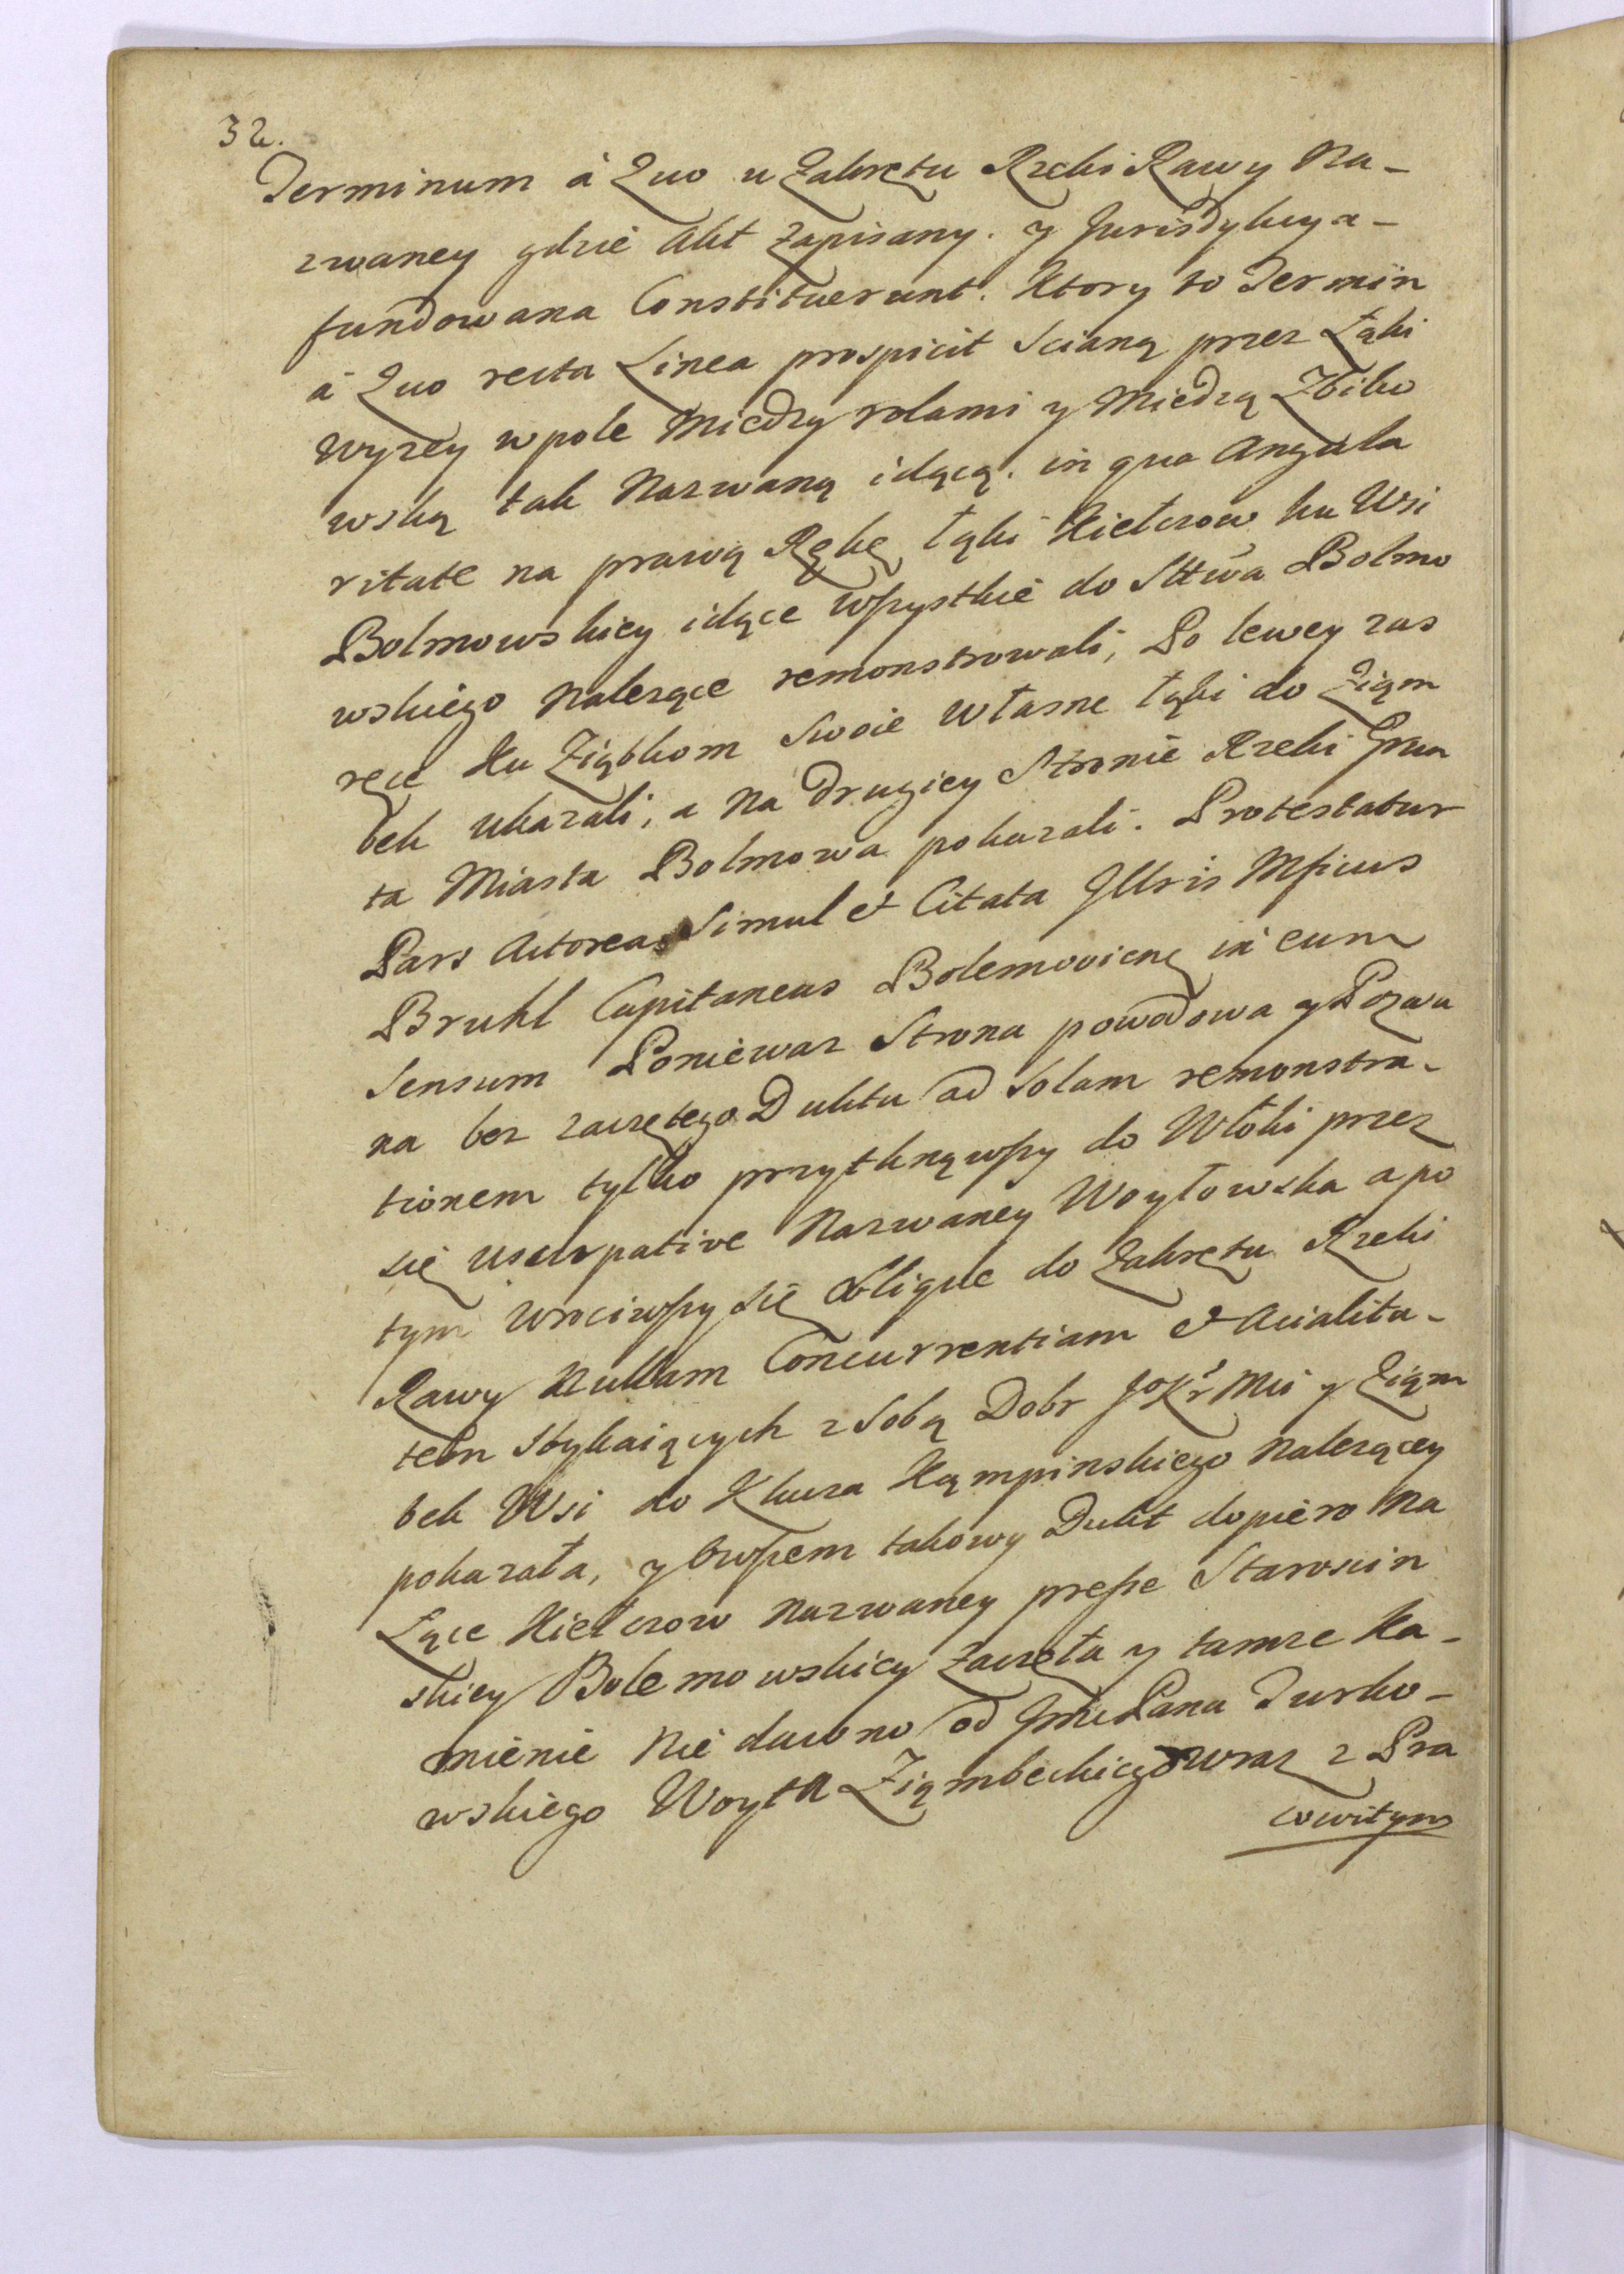 32.
Terminum á Quo u Zakrętu Rzeki Rawy Na-
zwaney gdzie Akt Zapisany. y Jurisdykcya-
fundowana Constituerunt. Ktory to Termin
á Quo recta Linea prospicit Scianą przez Łąki
Wyzey w pole Miedzy rolami y Miedzą Zbiko
wską tak Nazwaną idącą. in qua Angula
ritate na prawą Rękę łąki Kiełczow ku Wsi
Bolmowskiey idące wszystkie do Sttwa Bolmo
wskiego Nalezące remonstrowali, Po lewey zas
ręce Ku Ziąbkom Swoie własne łąki do Ziąm
bek Ukazali, a Na drugiey Stronie Rzeki Grun
ta Miasta Bolmowa pokazali. Protestatur
Pars Actorea Simul et Citata Jllris Mficus
Bruhl Capitaneus Bolemovien in eum
Sensum Poniewaz Strona powodowa y Pozwa
na bez zaczętego Duktu ad Solam remonstra-
tionem tylko przytknąwszy do Włoki przez
się usurpative Nazwaney Woytowska a po
tym wrociwszy się Oblique do Zakrętu Rzeki
Rawy Nullam Concurrentiam et Acialita-
tem Stykaiących z Sobą Dobr JoKr Mci y Ziąm
bek Wsi do Klucza Kąmpinskiego Nalezącey
pokazała, y owszem takowy Dukt dopiero Na
Łące Kiełczow Nazwaney presse Staroscin
skiey Bolemowskiey Zaczęła y tamze Ka-
mienie Nie dawno od Jmci Pana Turko-
wskiego Woyta Ziąmbeckiego wraz z Pra
cowitym